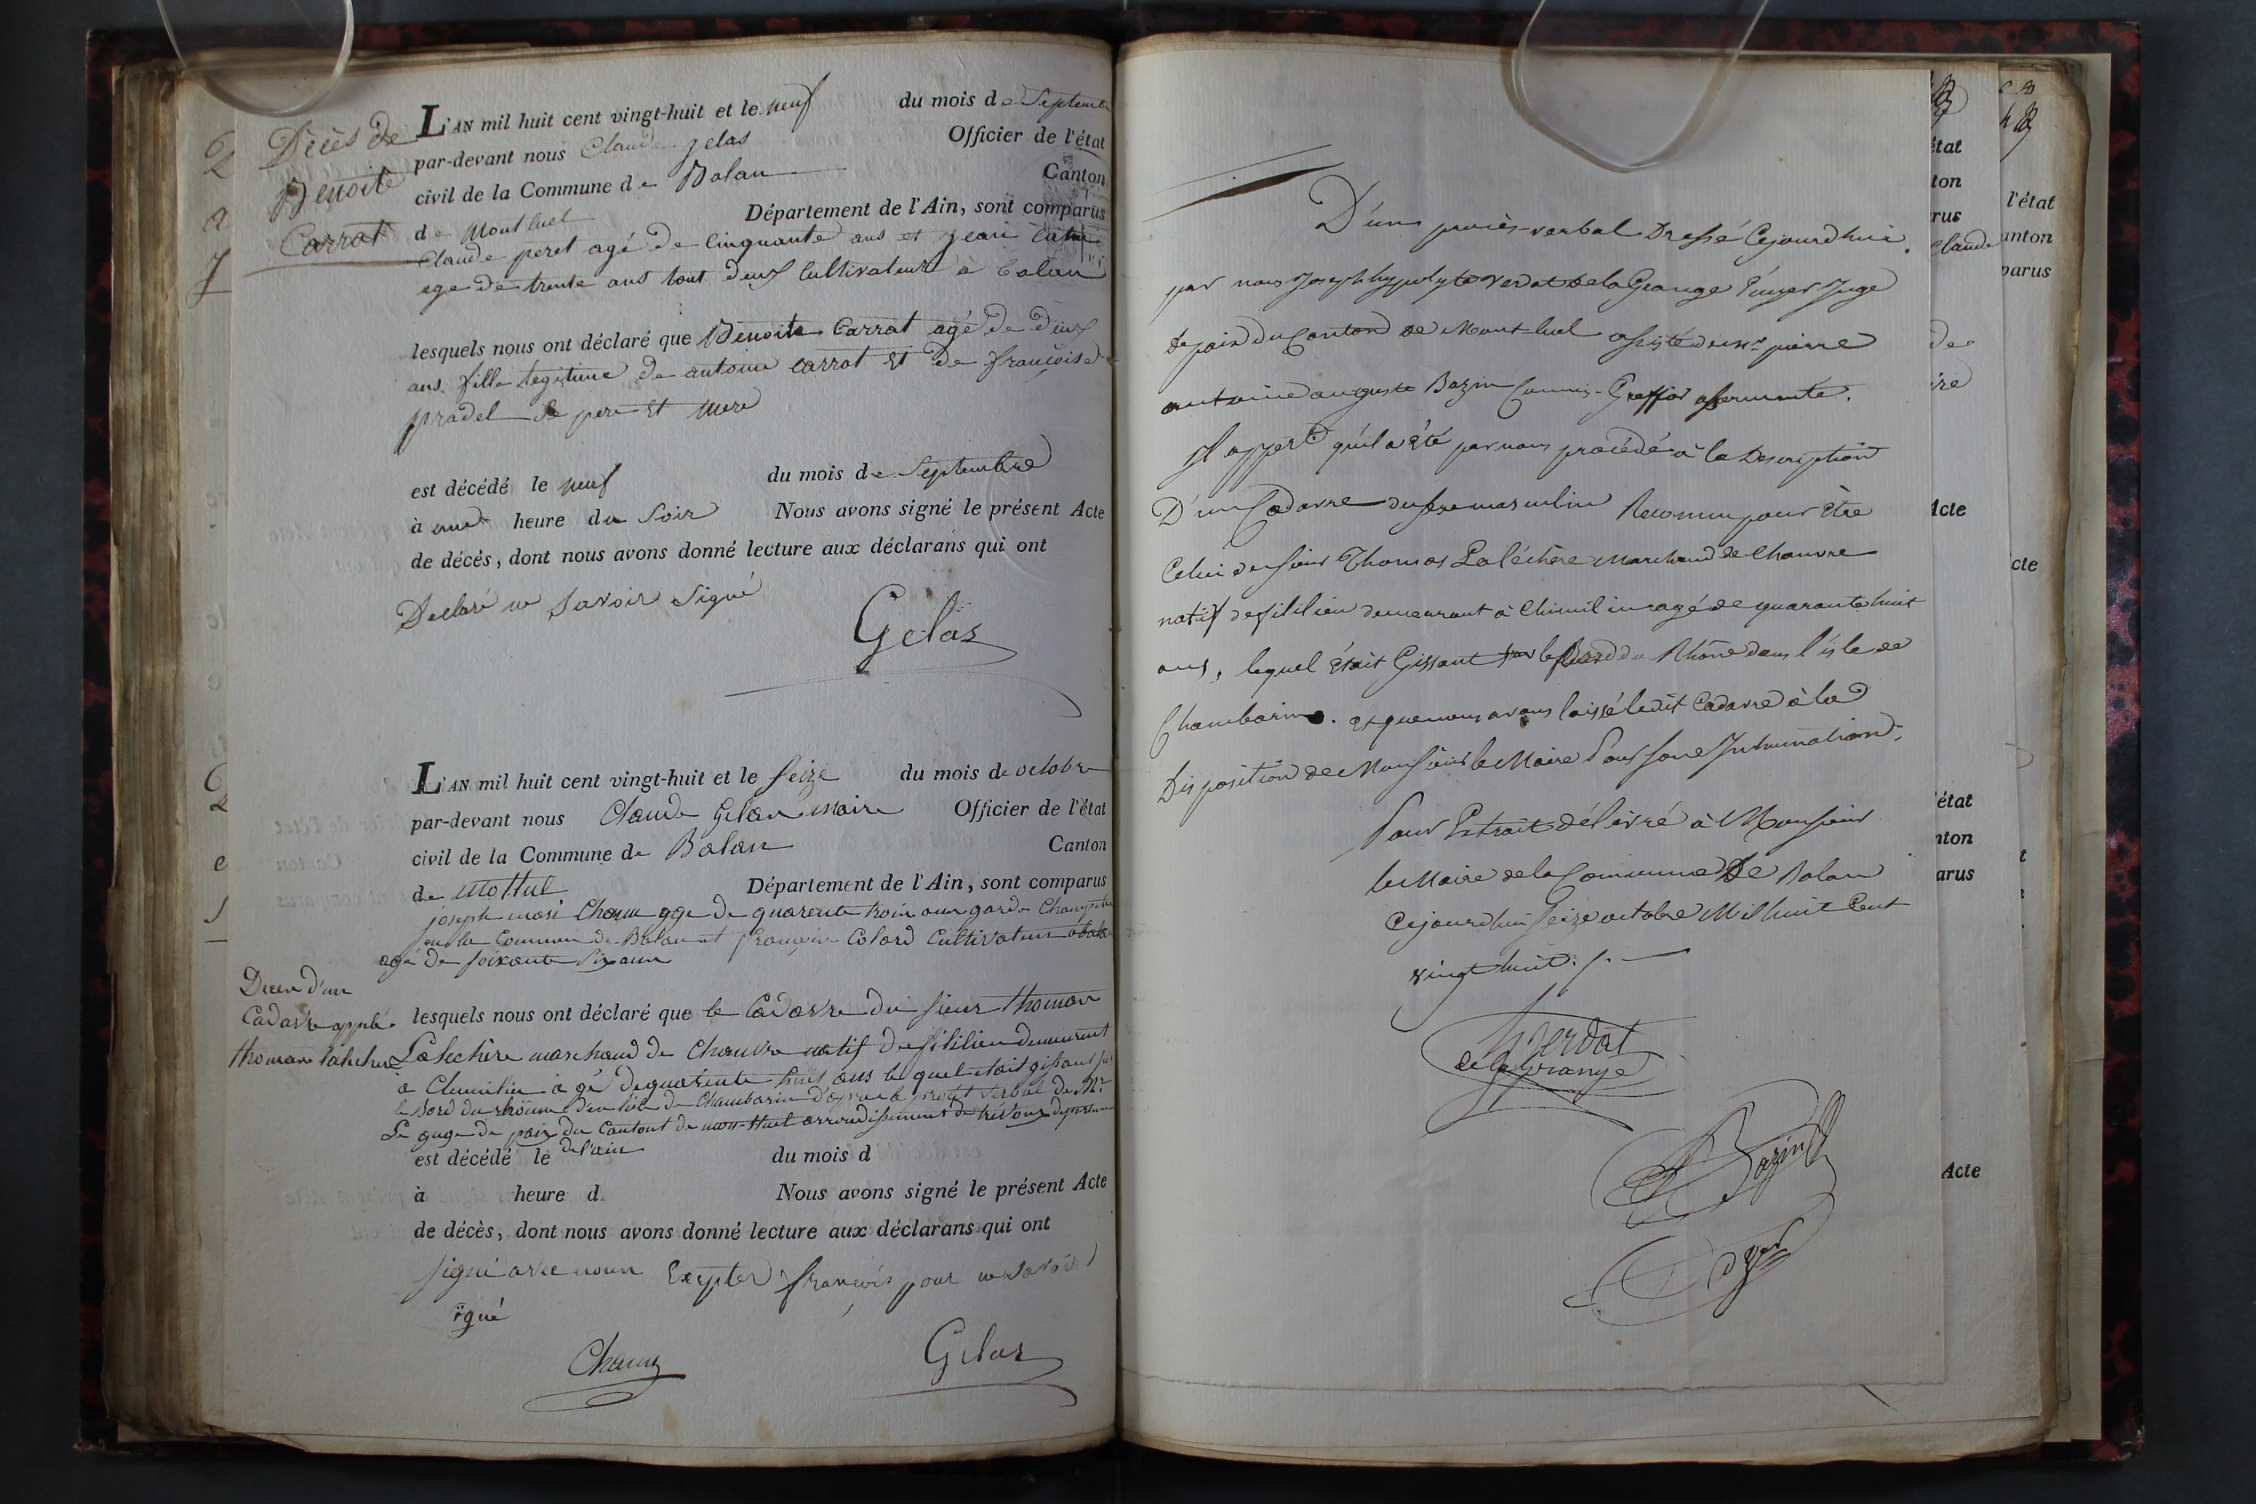 Décès de
Benoite
Carrat
L'AN mil huit cent vingt-huit et le neuf du mois de Septembre
par-devant nous Claude gelas Officier de l'état
civil de la Commune de Balan Canton
de Montluel Département de l'Ain, sont comparus
Claude peret agé de Cinquante ans et jean
age de trente ans tout deux Cultivateur à balan
lesquels nous ont déclaré que Benoite Carrat agé de deux
ans fille legitime de antoine carrat et de françoise
pradel se pere et mere
est décédé le neuf du mois de Septembre
à une heure du Soir Nous avons signé le présent Acte
de décès, dont nous avons donné lecture aux déclarans qui ont
Declaré ne savoir Signé
Gelas
L'AN mil huit cent vingt-huit et le seize du mois de octobre
par-devant nous Claude Gelas maire Officier de l'état
civil de la Commune de Balan Canton
de Département de l'Ain, sont comparus
joseph mari age de quarente trois ans garde Champetre
de Balan et françois Colard Cultivateur
agé de soixante six ans
Decès d'un
Cadavre applé
thomas
lesquels nous ont déclaré que le Cadavre du sieur thomas
marchand de Chanvre natif de fitilieu demeurent
à Chimilin à gé de quarente huit ans le quel etait gissant sur
le bord du de Chambarin verbal de Mr
Le guge de paix du Cantont de arrondissement de trévoux departement
de l'ain
est décédé le du mois d
à heure d Nous avons signé le présent Acte
de décès, dont nous avons donné lecture aux déclarans qui ont
signé avec nous Excepter françois pour ne savoir
igné
Gelas
D'un procès-verbal Dressé Cejourdhui
par nous Joseph hyppolyte Verdat de la Grange Ecuyer Juge
de paix du Canton de Montluel assisté du sr. pierre
antoine auguste Bazin Commis-Greffier assermenté.
Il appert qu'il a été par nous procédé à la Description
D'un Cadavre du sexe masculin Reconnu pour être
Celui du sieur Thomas Paléchère marchand de Chanvre
natif de fitilieu demeurant à Chimilin agé de quarante huit
ans, lequel était Gissant sur le Bord du Rhône dans l'isle de
Chambarin. et que nous avons laissé ledit Cadavre à la
Disposition de Monsieur le Maire Pour son Inhumation.
Pour Extrait délivré à Monsieur
le Maire de la Commune De Balan
Cejourdhui seize octobre Mil huit Cent
vingt huit
Verdat
de la Grange
Bazin
état
ton
rus
Claude
Acte
l'état
anton
parus
cte
état
nton
arus
Acte